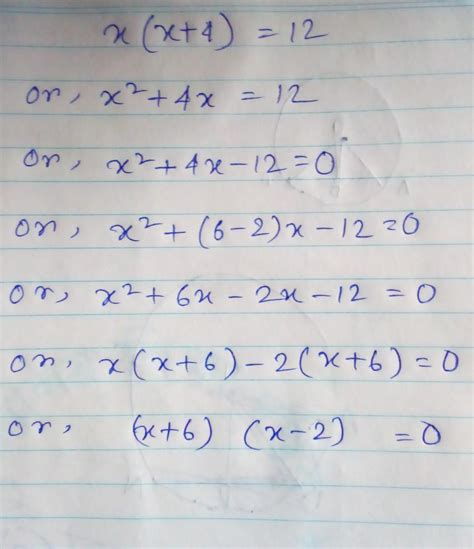 x(x+4) = 12
or, x²+4x = 12
or, x²+4x-12=0
or, x²+(6-2)x-12=0
or, x²+6x-2x-12=0
or, x(x+6)-2(x+6)=0
or, (x+6) (x-2) =0